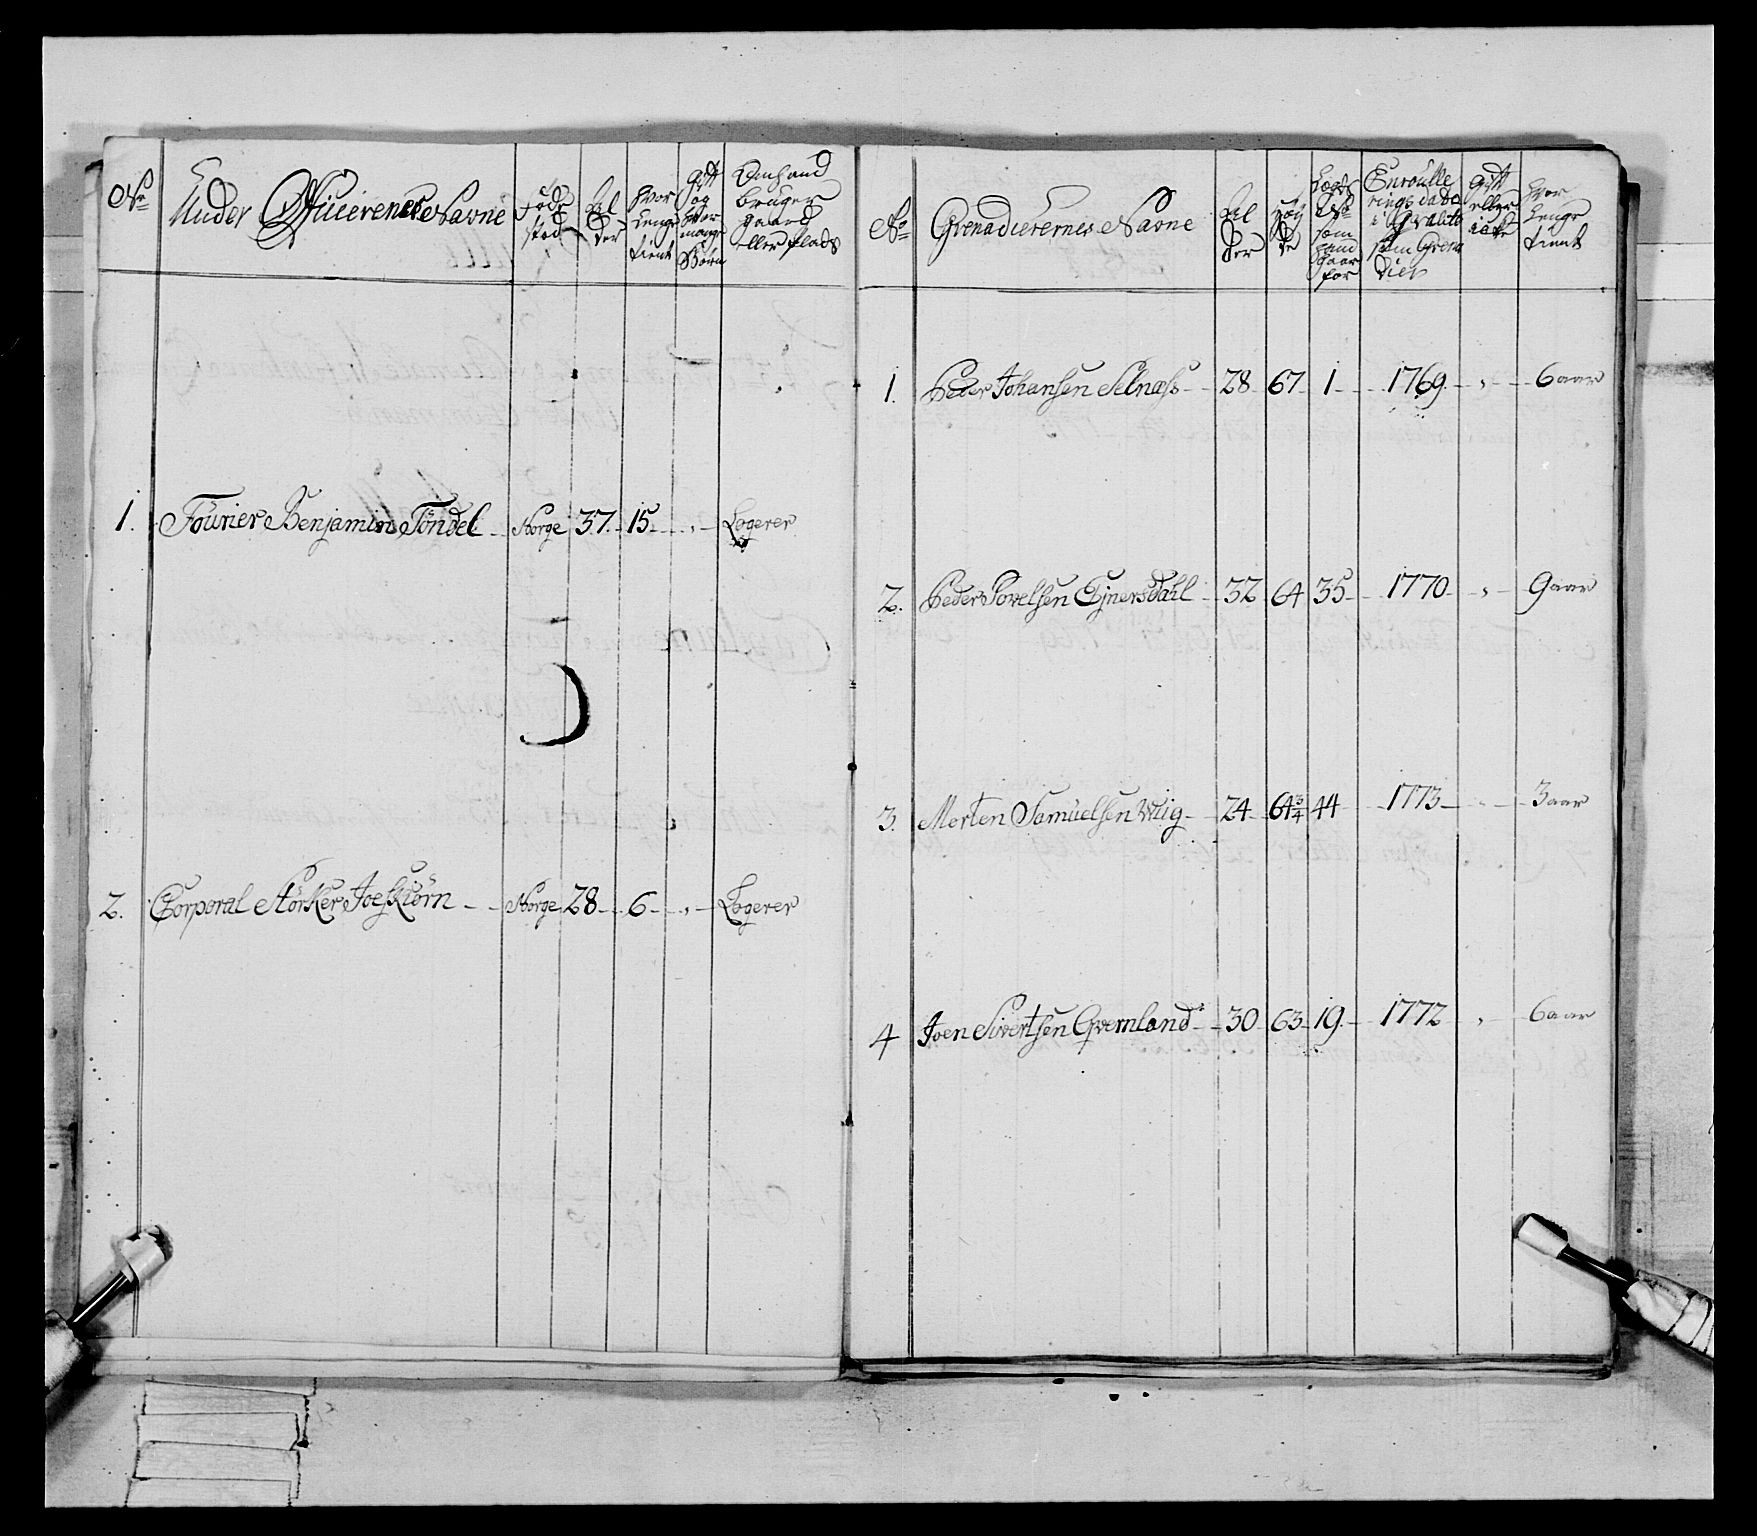 No
Under Officierenes Navne
Føde
sted
Al
der
hvor
Lenge
tient
Gift
og
hvor
mange
Børn
Om hand
bruger
gaard
eller Plads
1. Fourier Benjamin Tøndel Norge 37 15 " Logerer
2. Corporal Størker Joeskiørn Norge 28 6 " Logerer
No
Grenadierernes Navne
Al
der
Høy
de
Lægds
No
som
hand
staar
for
Enroulle
rings dato
i Qvalite
som Grena
dier
Gift
eller
icke
hvor
Lenge
tient
1. Peder Johansen Selnæss 28 67 1 1769 " 6 aar
2. Peder Povelsen Ejnersdahl 32 64 35 1770 " 9 aar
3. Merten Samuelsen Wiig 24 64¾ 44 1773 " 3 aar
4 Joen Sivertsen Qvernland 30 63 19 1772 " 6 aar